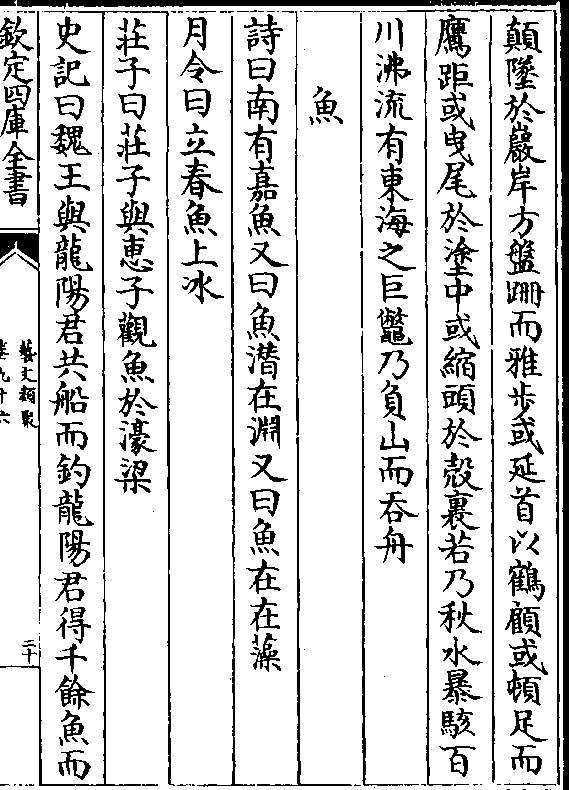 顛墜於巖岸方盤跚而雅步或延首以鶴顧或頓足而
鷹距或曳尾於塗中或縮頭於殼裏若乃秋水暴駭百
川沸流有東海之巨鼈乃負山而吞舟
魚
詩曰南有嘉魚又曰魚潛在淵又曰魚在在藻
月令曰立春魚上冰
莊子曰莊子與惠子觀魚於濠梁
史記曰魏王與龍陽君共船而釣龍陽君得千餘魚而
欽定四庫全書
藝文類聚
卷九十六
二十